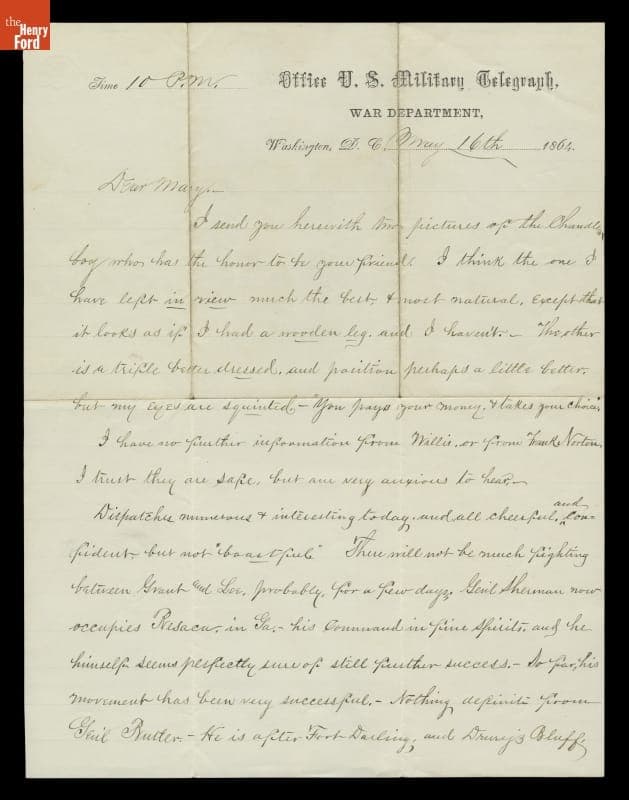 the
Henry
Ford
Time 10 P.M.
Office U. S. Military Telegraph,
WAR DEPARTMENT,
Washington, D. C. May 16th 1864.
Dear Mary.—
I send you herewith two pictures of the Chandler
boy who has the honor to be your friend. I think the one I
have left in view much the best, & most natural, except that
it looks as if I had a wooden leg. and I haven't.— The other
is a trifle better dressed, and position perhaps a little better.
but my eyes are squinted.— "You pays your money, & takes your choice"
I have no further information from Willis, or from Frank Norton.
I trust they are safe, but am very anxious to hear.—
Dispatches numerous & interesting today, and all cheerful, and con-
fident, but not "boastful" There will not be much fighting
between Grant and Lee, probably, for a few days, Genl Sherman now
occupies Resaca, in Ga.— his command in fine spirits, and he
himself seems perfectly sure of still further success.— So far, his
movement has been very successful.— Nothing definite from
Genl Butler.— He is after Fort Darling, and Drury's Bluff,